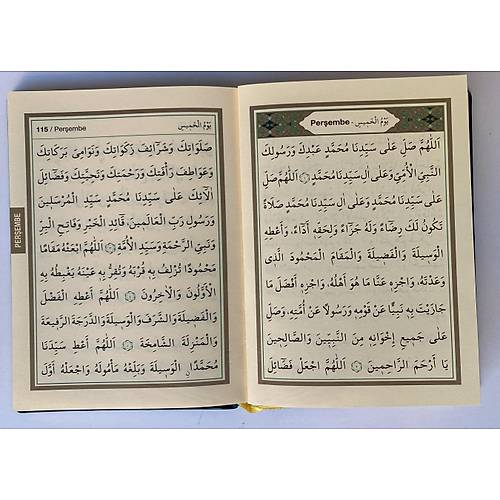 Perşembe - يَوْمُ الْخَمِيسِ
اَللّٰهُمَّ صَلِّ عَلٰى سَيِّدِنَا مُحَمَّدٍ عَبْدِكَ وَرَسُولِكَ
النَّبِيِّ الْاُمِّيِّ وَعَلٰى اٰلِ سَيِّدِنَا مُحَمَّدٍ اَللّٰهُمَّ صَلِّ
عَلٰى سَيِّدِنَا مُحَمَّدٍ وَعَلٰى اٰلِ سَيِّدِنَا مُحَمَّدٍ صَلَاةً
تَكُونُ لَكَ رِضَاءً وَلَهُ جَزَاءً وَلِحَقِّهِ اَدَاءً، وَاَعْطِهِ
الْوَسِيلَةَ وَالْفَضِيلَةَ وَالْمَقَامَ الْمَحْمُودَ الَّذِى
وَعَدْتَهُ، وَاجْزِهِ عَنَّا مَا هُوَ اَهْلُهُ، وَاجْزِهِ اَفْضَلَ مَا
جَازَيْتَ بِهِ نَبِيًّا عَنْ قَوْمِهِ وَرَسُولًا عَنْ اُمَّتِهِ، وَصَلِّ
عَلٰى جَمِيعِ اِخْوَانِهِ مِنَ النَّبِيِّينَ وَالصَّالِحِينَ
يَا اَرْحَمَ الرَّاحِمِينَ اَللّٰهُمَّ اجْعَلْ فَضَائِلَ
115 / Perşembe يَوْمُ الْخَمِيسِ
PERŞEMBE
صَلَوَاتِكَ وَشَرَائِفَ زَكَوَاتِكَ وَنَوَامِىَ بَرَكَاتِكَ
وَعَوَاطِفَ رَأْفَتِكَ وَرَحْمَتِكَ وَتَحِيَّتِكَ وَفَضَائِلَ
اٰلَائِكَ عَلٰى سَيِّدِنَا مُحَمَّدٍ سَيِّدِ الْمُرْسَلِينَ
وَرَسُولِ رَبِّ الْعَالَمِينَ، قَائِدِ الْخَيْرِ وَفَاتِحِ الْبِرِّ
وَنَبِيِّ الرَّحْمَةِ وَسَيِّدِ الْاُمَّةِ اَللّٰهُمَّ ابْعَثْهُ مَقَامًا
مَحْمُودًا تُزْلِفُ بِهِ قُرْبَهُ وَتُقِرُّ بِهِ عَيْنَهُ يَغْبِطُهُ بِهِ
الْاَوَّلُونَ وَالْاٰخِرُونَ اَللّٰهُمَّ اَعْطِهِ الْفَضْلَ
وَالْفَضِيلَةَ وَالشَّرَفَ وَالْوَسِيلَةَ وَالدَّرَجَةَ الرَّفِيعَةَ
وَالْمَنْزِلَةَ الشَّامِخَةَ اَللّٰهُمَّ اَعْطِ سَيِّدَنَا
مُحَمَّدًا ۨالْوَسِيلَةَ وَبَلِّغْهُ مَأْمُولَهُ وَاجْعَلْهُ اَوَّلَ